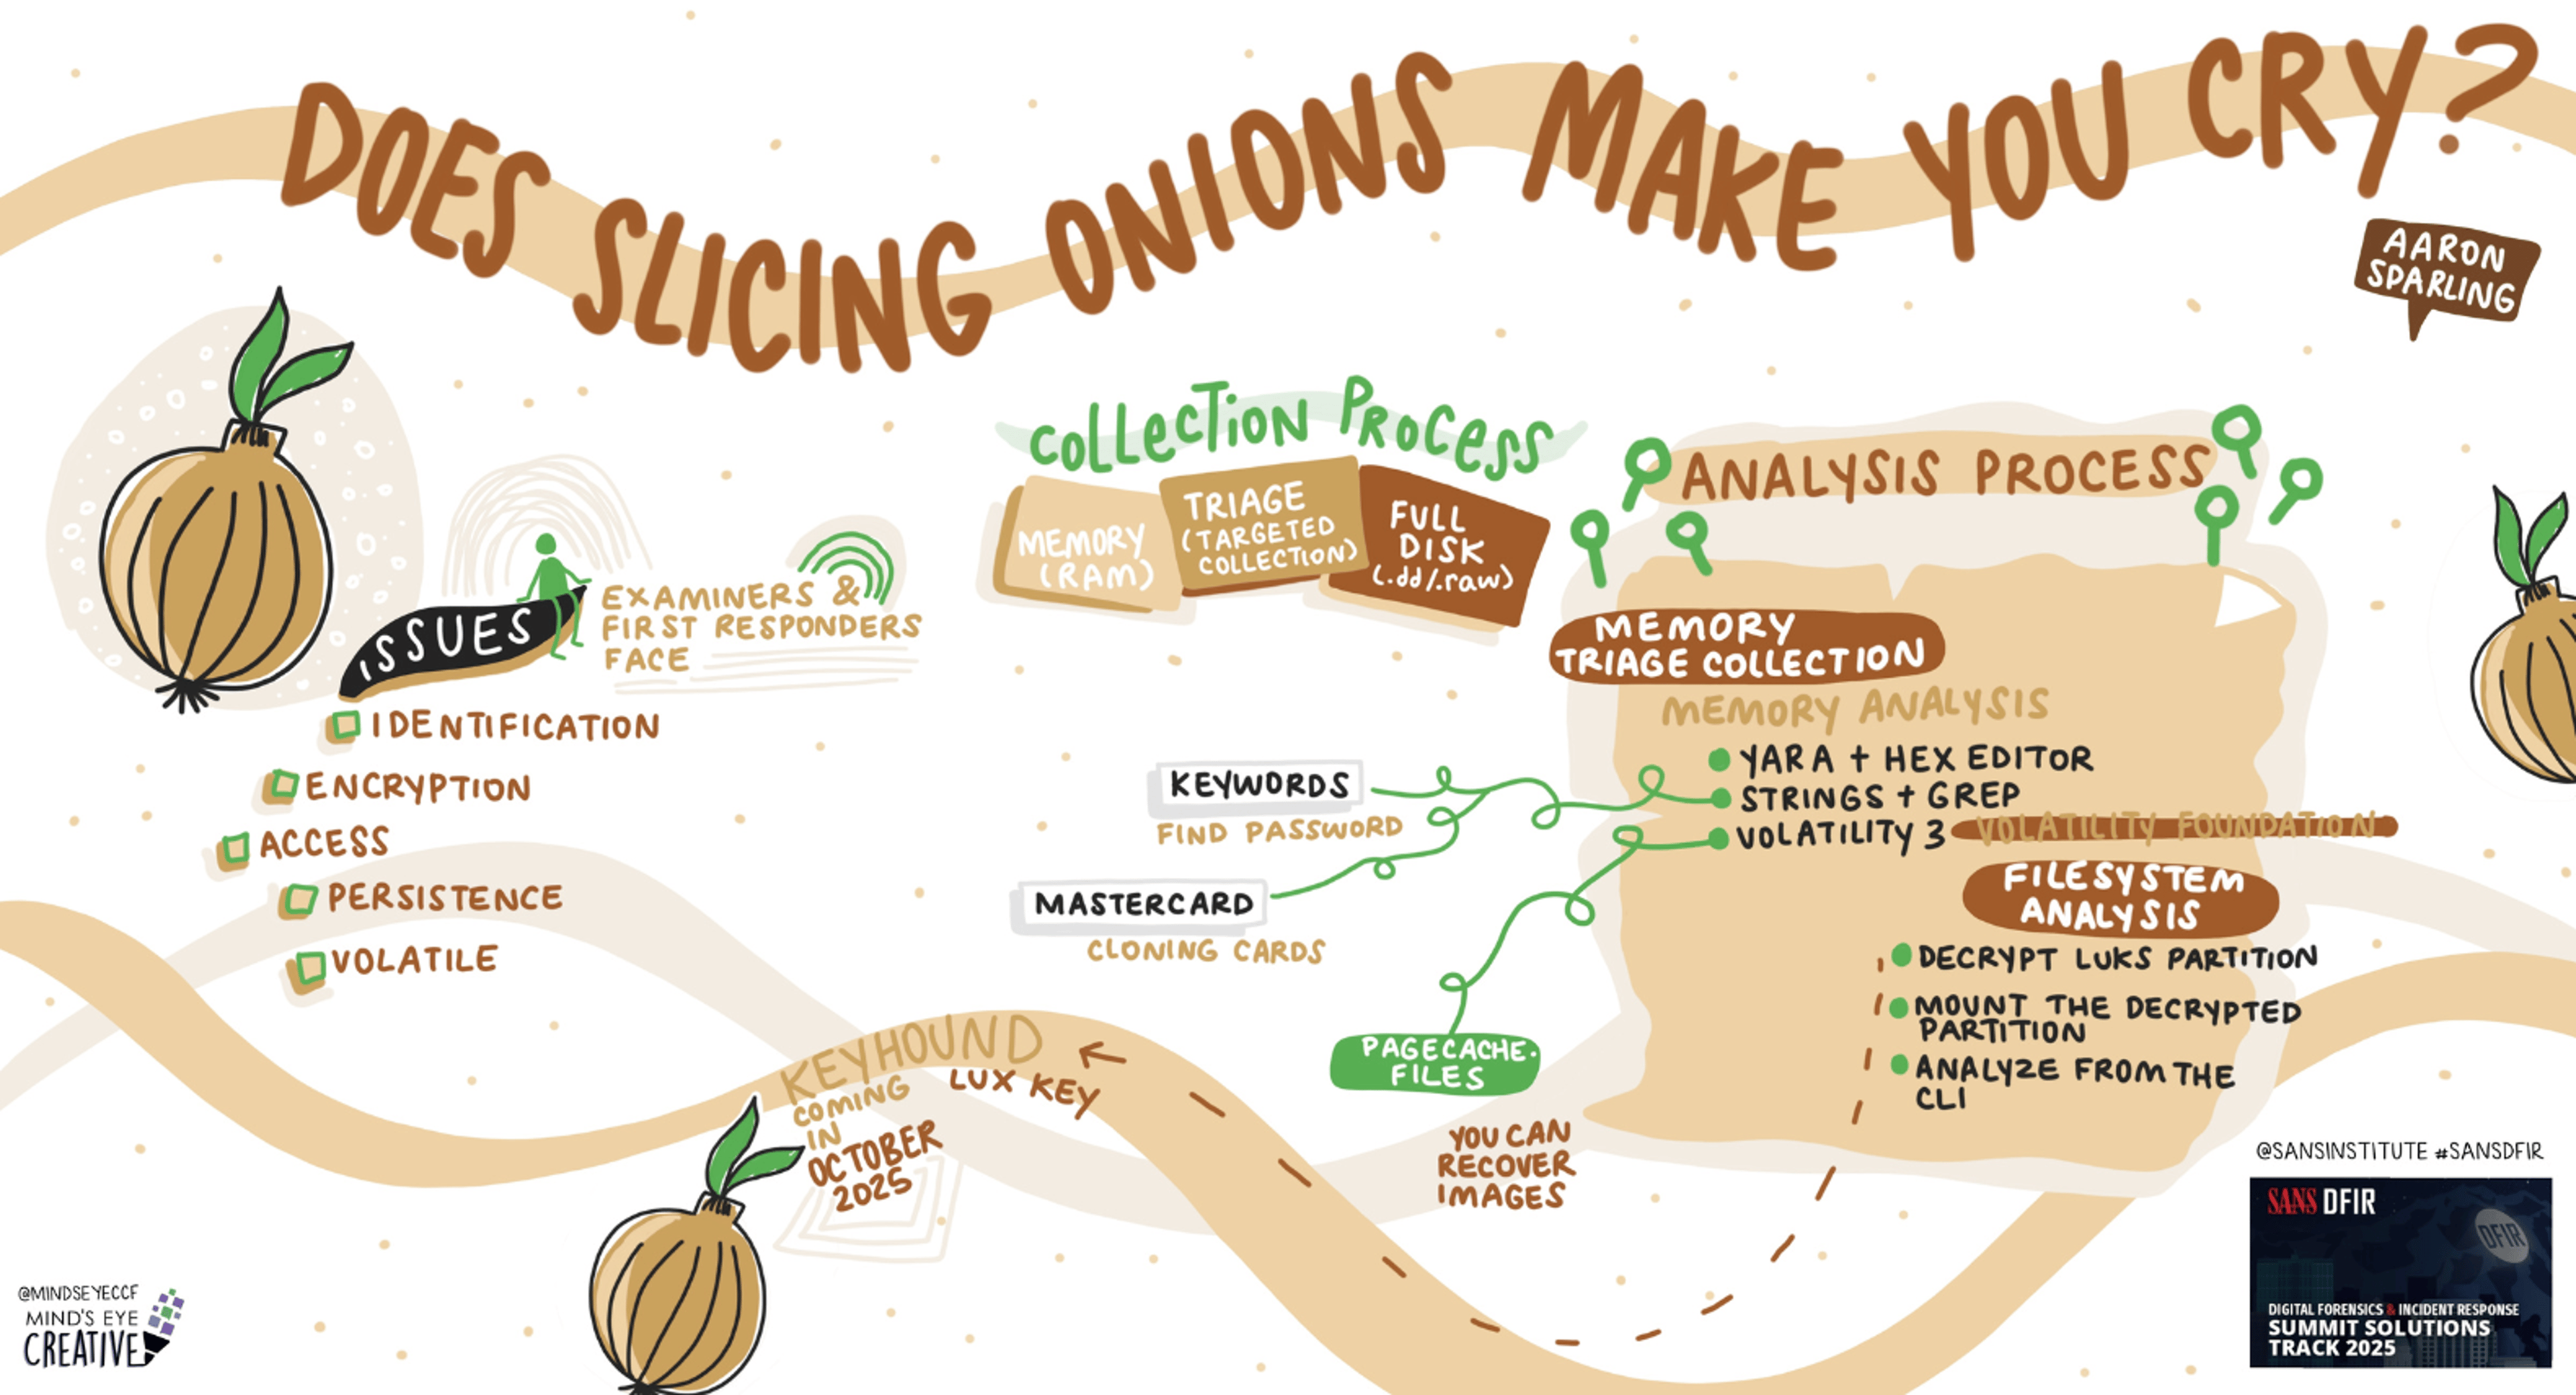 DOES SLICING ONIONS MAKE YOU CRY?
AARON
SPARLING
ISSUES
EXAMINERS &
FIRST RESPONDERS
FACE
IDENTIFICATION
ENCRYPTION
ACCESS
PERSISTENCE
VOLATILE
COLLECTION PROCESS
MEMORY
(RAM)
TRIAGE
(TARGETED
COLLECTION)
FULL
DISK
(.dd/.raw)
ANALYSIS PROCESS
MEMORY
TRIAGE COLLECTION
MEMORY ANALYSIS
YARA + HEX EDITOR
STRINGS + GREP
VOLATILITY 3 VOLATILITY FOUNDATION
KEYWORDS
FIND PASSWORD
MASTERCARD
CLONING CARDS
PAGECACHE.
FILES
YOU CAN
RECOVER
IMAGES
FILESYSTEM
ANALYSIS
DECRYPT LUKS PARTITION
MOUNT THE DECRYPTED
PARTITION
ANALYZE FROM THE
CLI
KEYHOUND
LUX KEY
COMING
IN
OCTOBER
2025
@MINDSEYECCF
MIND'S EYE
CREATIVE
@SANSINSTITUTE #SANSDFIR
SANS DFIR
DFIR
DIGITAL FORENSICS & INCIDENT RESPONSE
SUMMIT SOLUTIONS
TRACK 2025